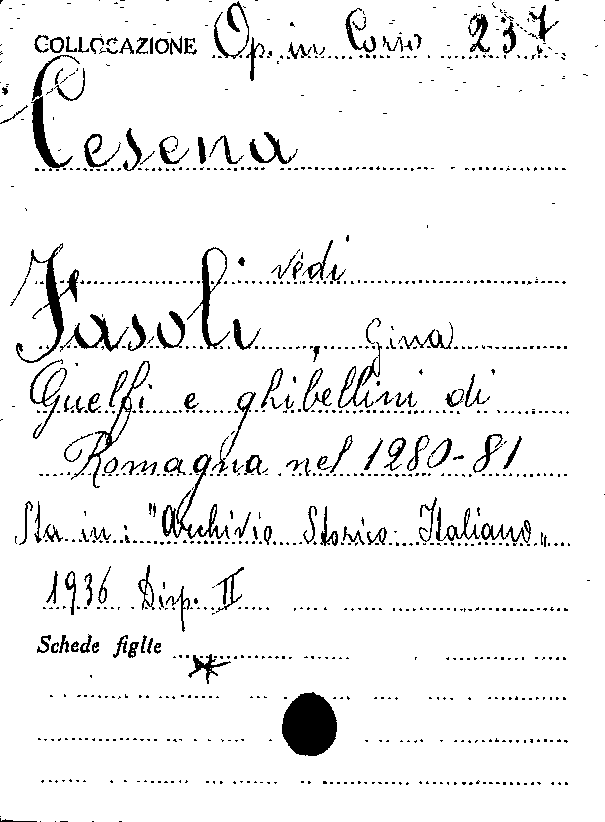 COLLOCAZIONE Op. in Corso 237
Cesena
vedi
Fasoli, Gina
Guelfi e ghibellini di
Romagna nel 1280-81
Sta in: "Archivio Storico Italiano"
1936 Disp. II
Schede figlie